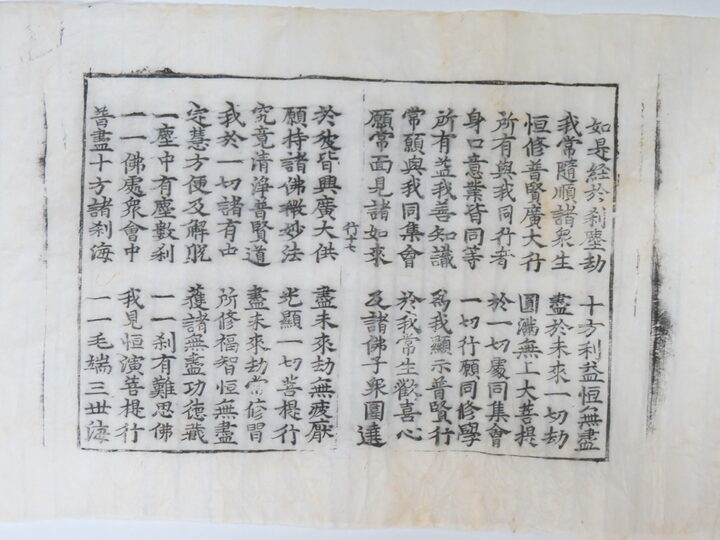 如是經於刹塵劫 十方利益恒無盡
我常隨順諸衆生 盡於未來一切劫
恒修普賢廣大行 圓滿無上大菩提
所有與我同行者 於一切處同集會
身口意業皆同等 一切行願同修學
所有益我善知識 爲我顯示普賢行
常願與我同集會 於我常生歡喜心
願常面見諸如來 及諸佛子衆圍遶
行十七
於彼皆興廣大供 盡未來劫無疲厭
願持諸佛微妙法 光顯一切菩提行
究竟清淨普賢道 盡未來劫常修習
我於一切諸有中 所修福智恒無盡
定慧方便及解脫 獲諸無盡功德藏
一塵中有塵數刹 一一刹有難思佛
一一佛處衆會中 我見恒演菩提行
普盡十方諸刹海 一一毛端三世海